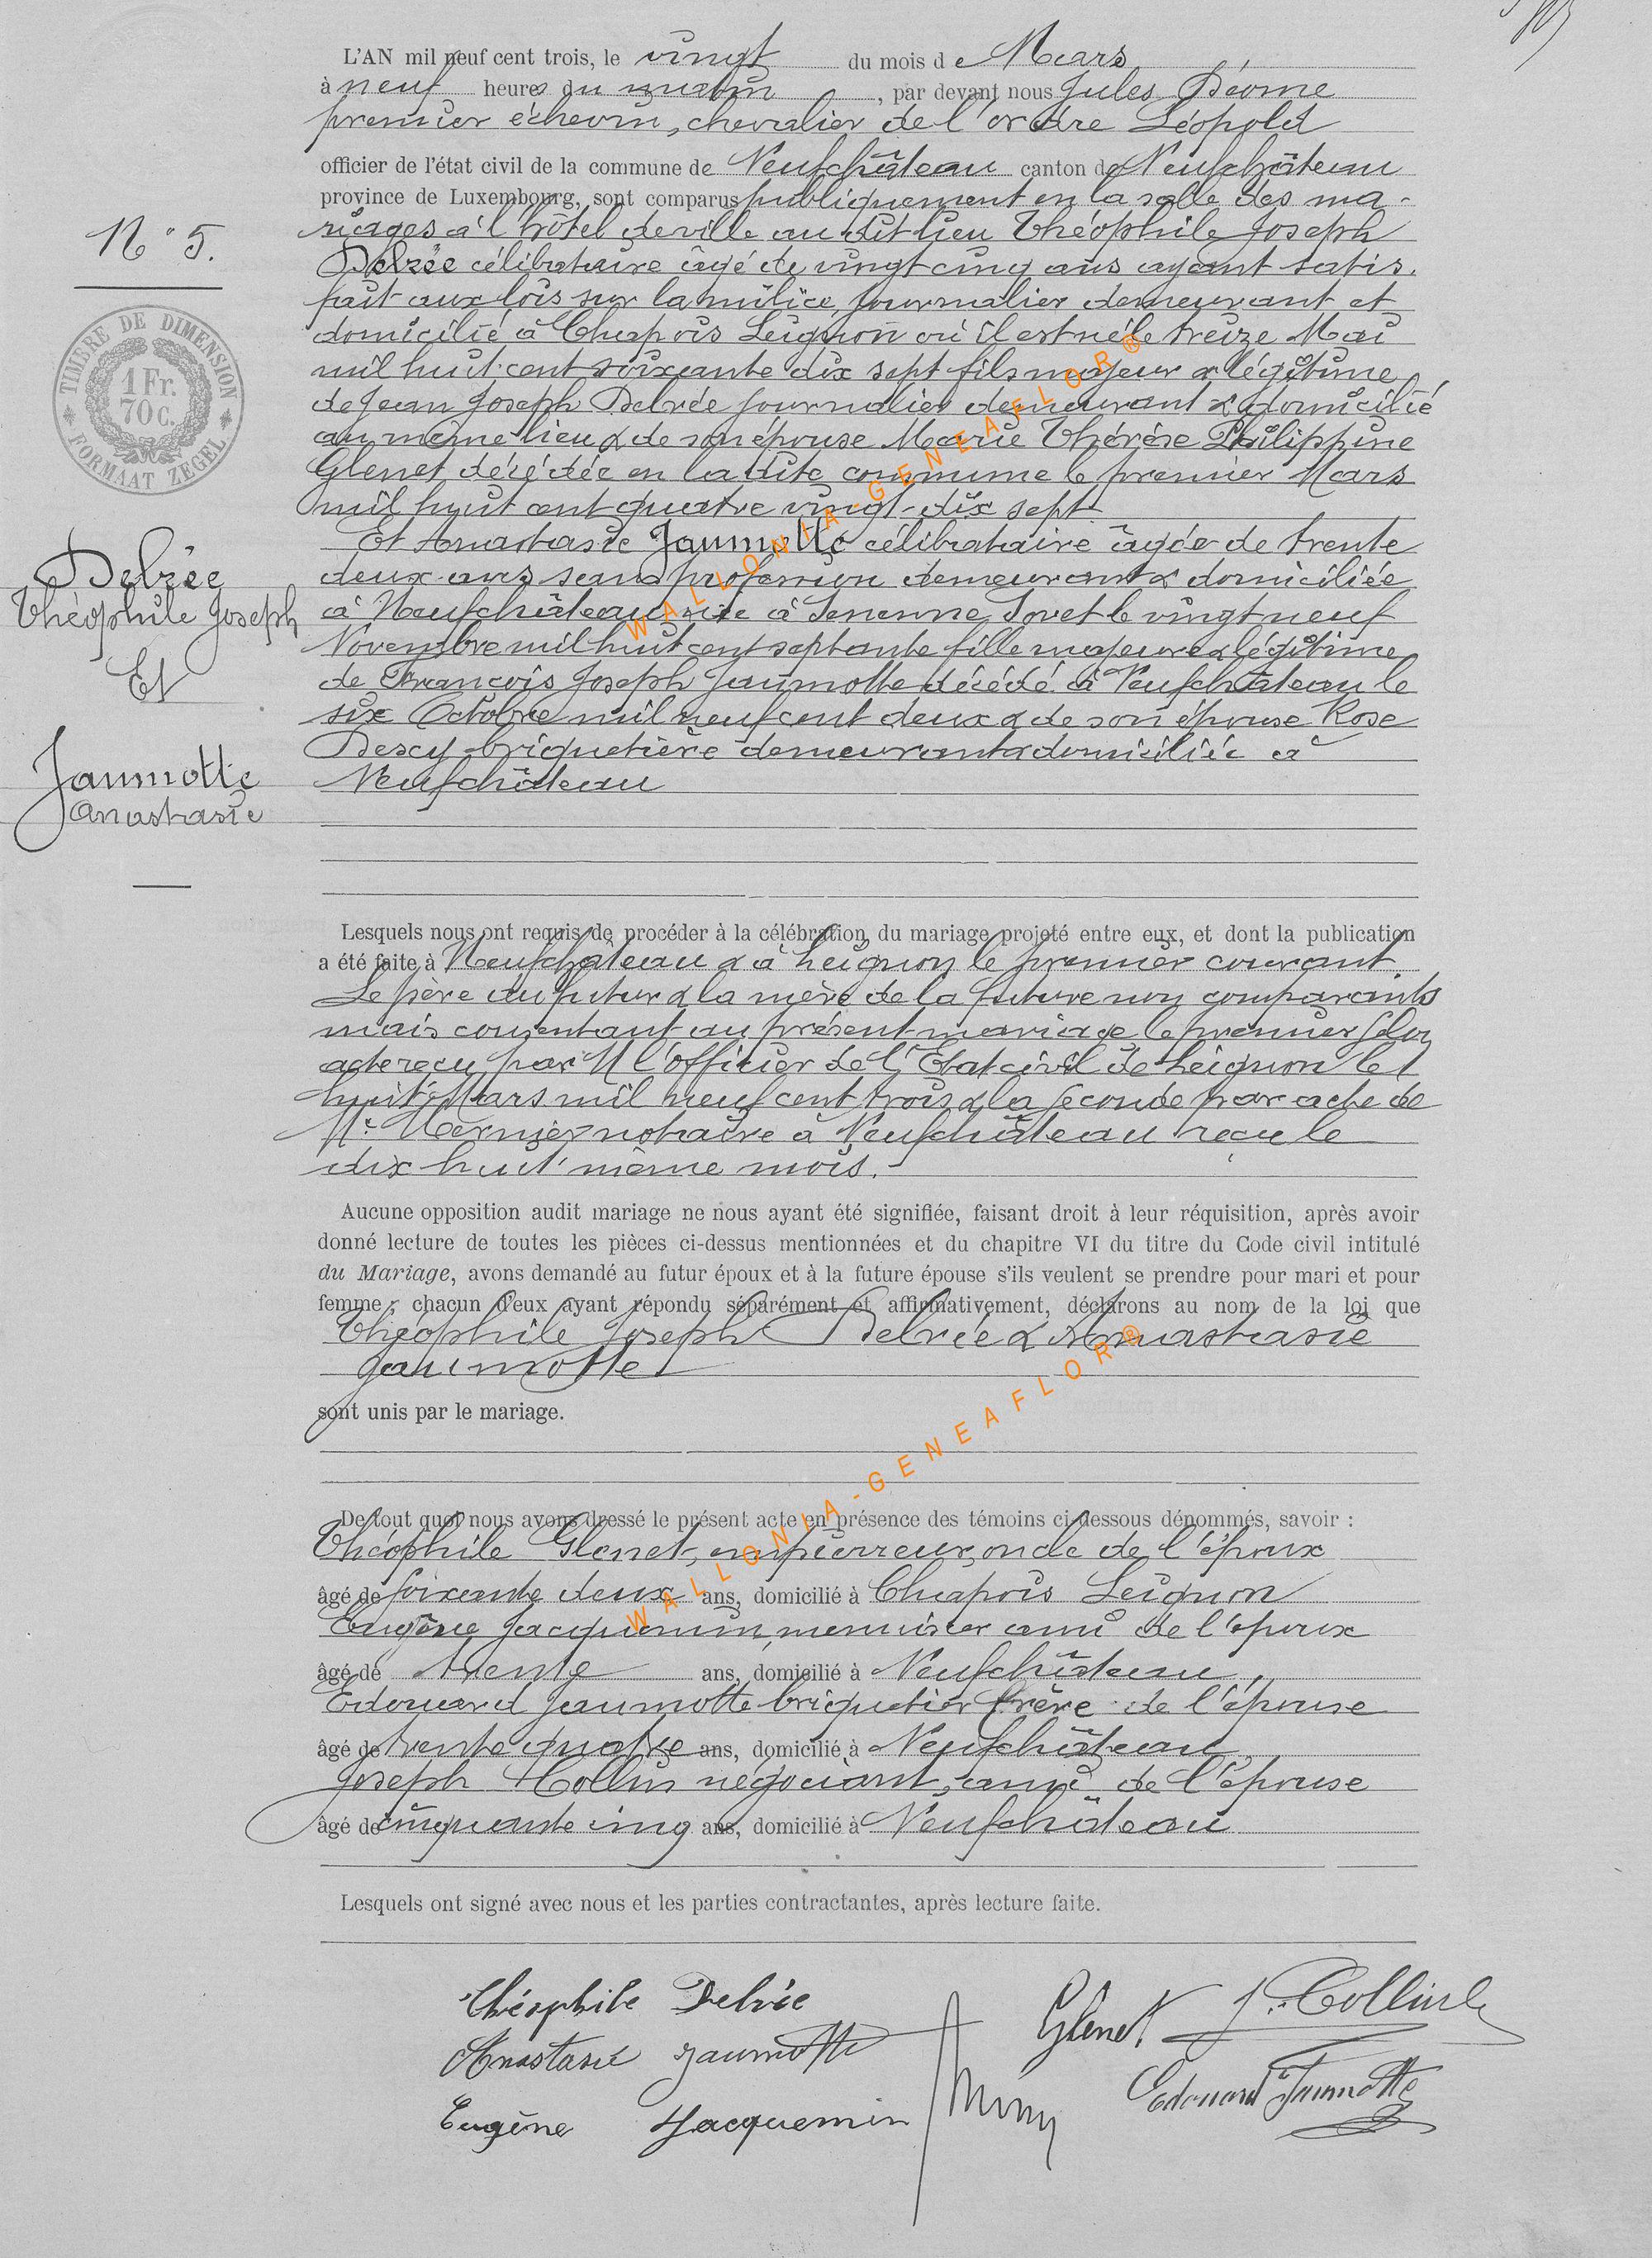 L'AN mil neuf cent trois, le vingt du mois de Mars
à neuf heures du matin, par devant nous Jules Déome
premier échevin, chevalier de l'ordre Léopold
officier de l'état civil de la commune de Neufchâteau canton de Neufchâteau
province de Luxembourg, sont comparus publiquement en la salle des ma-
riages à l'hôtel de ville au dit lieu Théophile Joseph
Delzée célibataire âgé de vingt cinq ans ayant satis.
fait aux lois sur la milice, journalier demeurant et
domicilié à Chapois Leignon où il est né le treize Mai
mil huit cent soixante dix sept fils majeur & légitime
de Jean Joseph Delvée journalier demeurant & domicilié
au même lieu & de son épouse Marie Thérèse Philippine
Glenet décédée en la dite commune le premier Mars
mil huit cent quatre vingt-dix sept
Et Anastasie Jaumotte célibataire âgée de trente
deux ans sans profession demeurant & domiciliée
à Neufchâteau née à Senenne Sovet le vingt neuf
Novembre mil huit cent septante fille majeure & légitime
de François Joseph Jaumotte décédé à Neufchâteau le
six Octobre mil neuf cent deux & de son épouse Rose
Descy briquetière demeurant & domiciliée à
Neufchâteau
N° 5.
TIMBRE DE DIMENSION
1 Fr.
70 c.
FORMAAT ZEGEL
Delzée
Théophile Joseph
Et
Jaumotte
Anastasie
Lesquels nous ont requis de procéder à la célébration du mariage projeté entre eux, et dont la publication
a été faite à Neufchâteau & à Leignon le premier courant.
Le père du futur & la mère de la future non comparants
mais consentant au présent mariage le premier selon
acte reçu par M l'officier de l'Etat civil de Leignon le
huit Mars mil neuf cent trois & la seconde par acte de
Me Mernier notaire à Neufchâteau reçu le
dix huit même mois.
Aucune opposition audit mariage ne nous ayant été signifiée, faisant droit à leur réquisition, après avoir
donné lecture de toutes les pièces ci-dessus mentionnées et du chapitre VI du titre du Code civil intitulé
du Mariage, avons demandé au futur époux et à la future épouse s'ils veulent se prendre pour mari et pour
femme; chacun d'eux ayant répondu séparément et affirmativement, déclarons au nom de la loi que
Théophile Joseph Delvée & Anastasie
Jaumotte
sont unis par le mariage.
De tout quoi nous avons dressé le présent acte en présence des témoins ci-dessous dénommés, savoir :
Théophile Glenet, empierreur, oncle de l'époux
âgé de soixante deux ans, domicilié à Chapois Leignon
Eugène Jacquemin, menuisier ami de l'époux
âgé de trente ans, domicilié à Neufchâteau,
Edouard Jaumotte briquetier frère de l'épouse
âgé de trente quatre ans, domicilié à Neufchâteau
Joseph Collin négociant, ami de l'épouse
âgé de cinquante cinq ans, domicilié à Neufchâteau
Lesquels ont signé avec nous et les parties contractantes, après lecture faite.
Théophile Delvée
Anastasie Jaumotte
Eugène Jacquemin
Glenet
J. Collin
Edouard Jaumotte
WALLONIA-GENEAFLOR®
WALLONIA-GENEAFLOR®